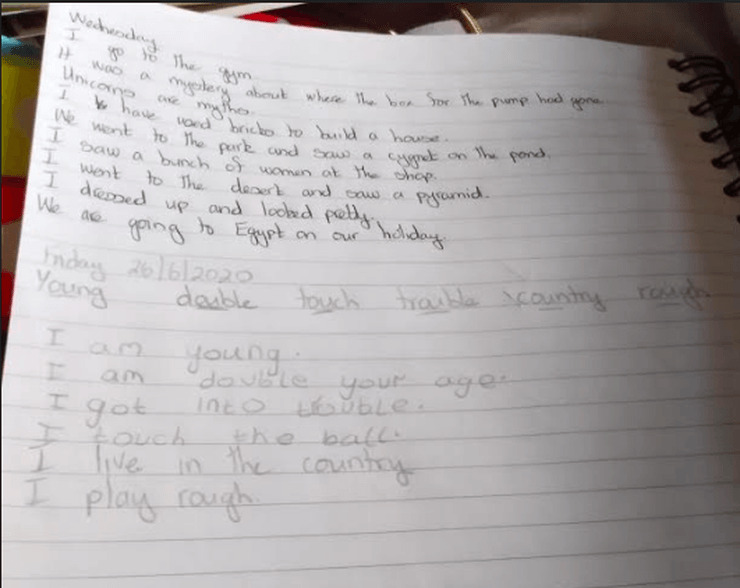 Wednesday
I go to the gym
It was a mystery about where the box for the pump had gone.
Unicorns are myths.
I have used bricks to build a house.
We went to the park and saw a cygnet on the pond.
I saw a bunch of women at the shop.
I went to the desert and saw a pyramid.
I dressed up and looked pretty.
We are going to Egypt on our holiday.
Friday 26/6/2020
Young double touch trouble country rough
I am young.
I am double your age.
I got into trouble.
I touch the ball.
I live in the country
I play rough.